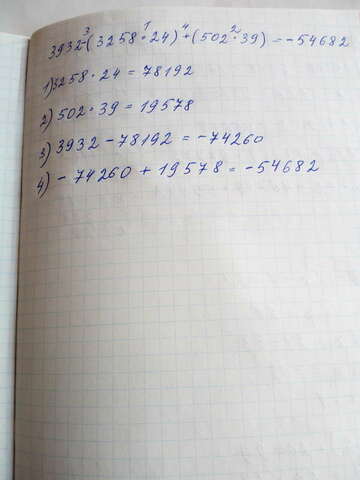 3932-(3258·24)+(502·39)=-54682
1)3258·24=78192
2)502·39=19578
3)3932-78192=-74260
4)-74260+19578=-54682